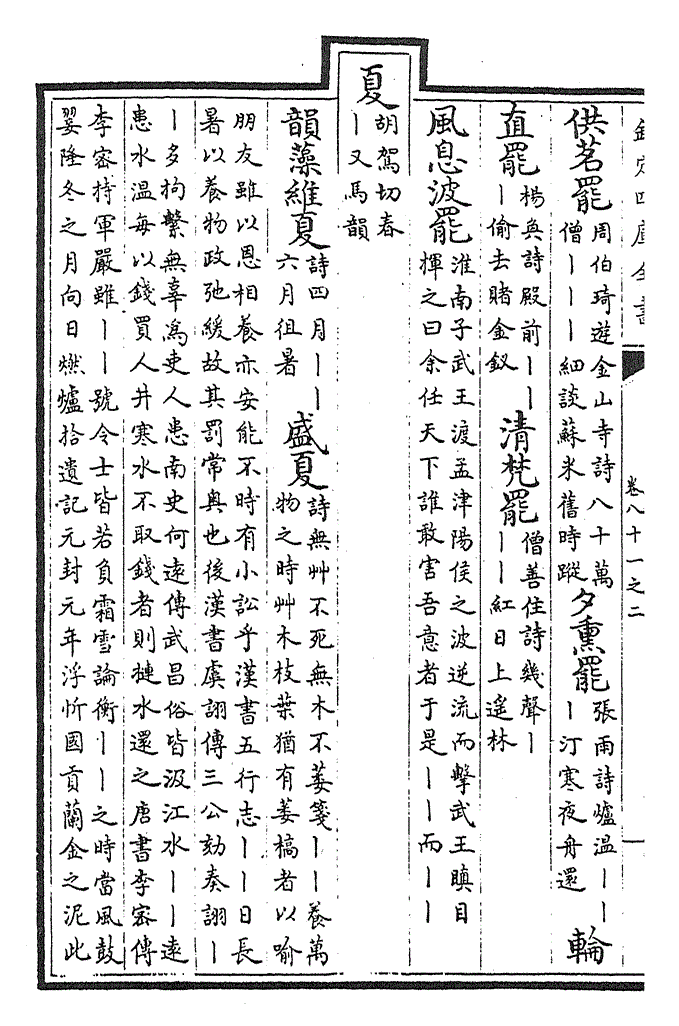 欽定四庫全書
卷八十一之二
一
供茗罷周伯琦遊金山寺詩八十萬僧｜｜｜細談蘇米舊時蹤夕熏罷張雨詩爐溫｜｜｜汀寒夜舟還輪
直罷楊奐詩殿前｜｜｜偷去賭金釵清梵罷僧善住詩幾聲｜｜｜紅日上遙林
風息波罷淮南子武王渡孟津陽侯之波逆流而擊武王瞋目揮之曰余任天下誰敢害吾意者于是｜｜而｜｜
夏胡駕切春｜又馬韻
韻藻維夏詩四月｜｜六月徂暑盛夏詩無艸不死無木不萎箋｜｜養萬物之時艸木枝葉猶有萎槁者以喻
朋友雖以恩相養亦安能不時有小訟乎漢書五行志｜｜日長
暑以養物政弛緩故其罰常奧也後漢書虞詡傳三公劾奏詡｜
｜多拘繫無辜爲吏人患南史何遠傳武昌俗皆汲江水｜｜遠
患水溫每以錢買人井寒水不取錢者則摙水還之唐書李密傳
李密持軍嚴雖｜｜號令士皆若負霜雪論衡｜｜之時當風鼓
翣隆冬之月向日燃爐拾遺記元封元年浮忻國貢蘭金之泥此